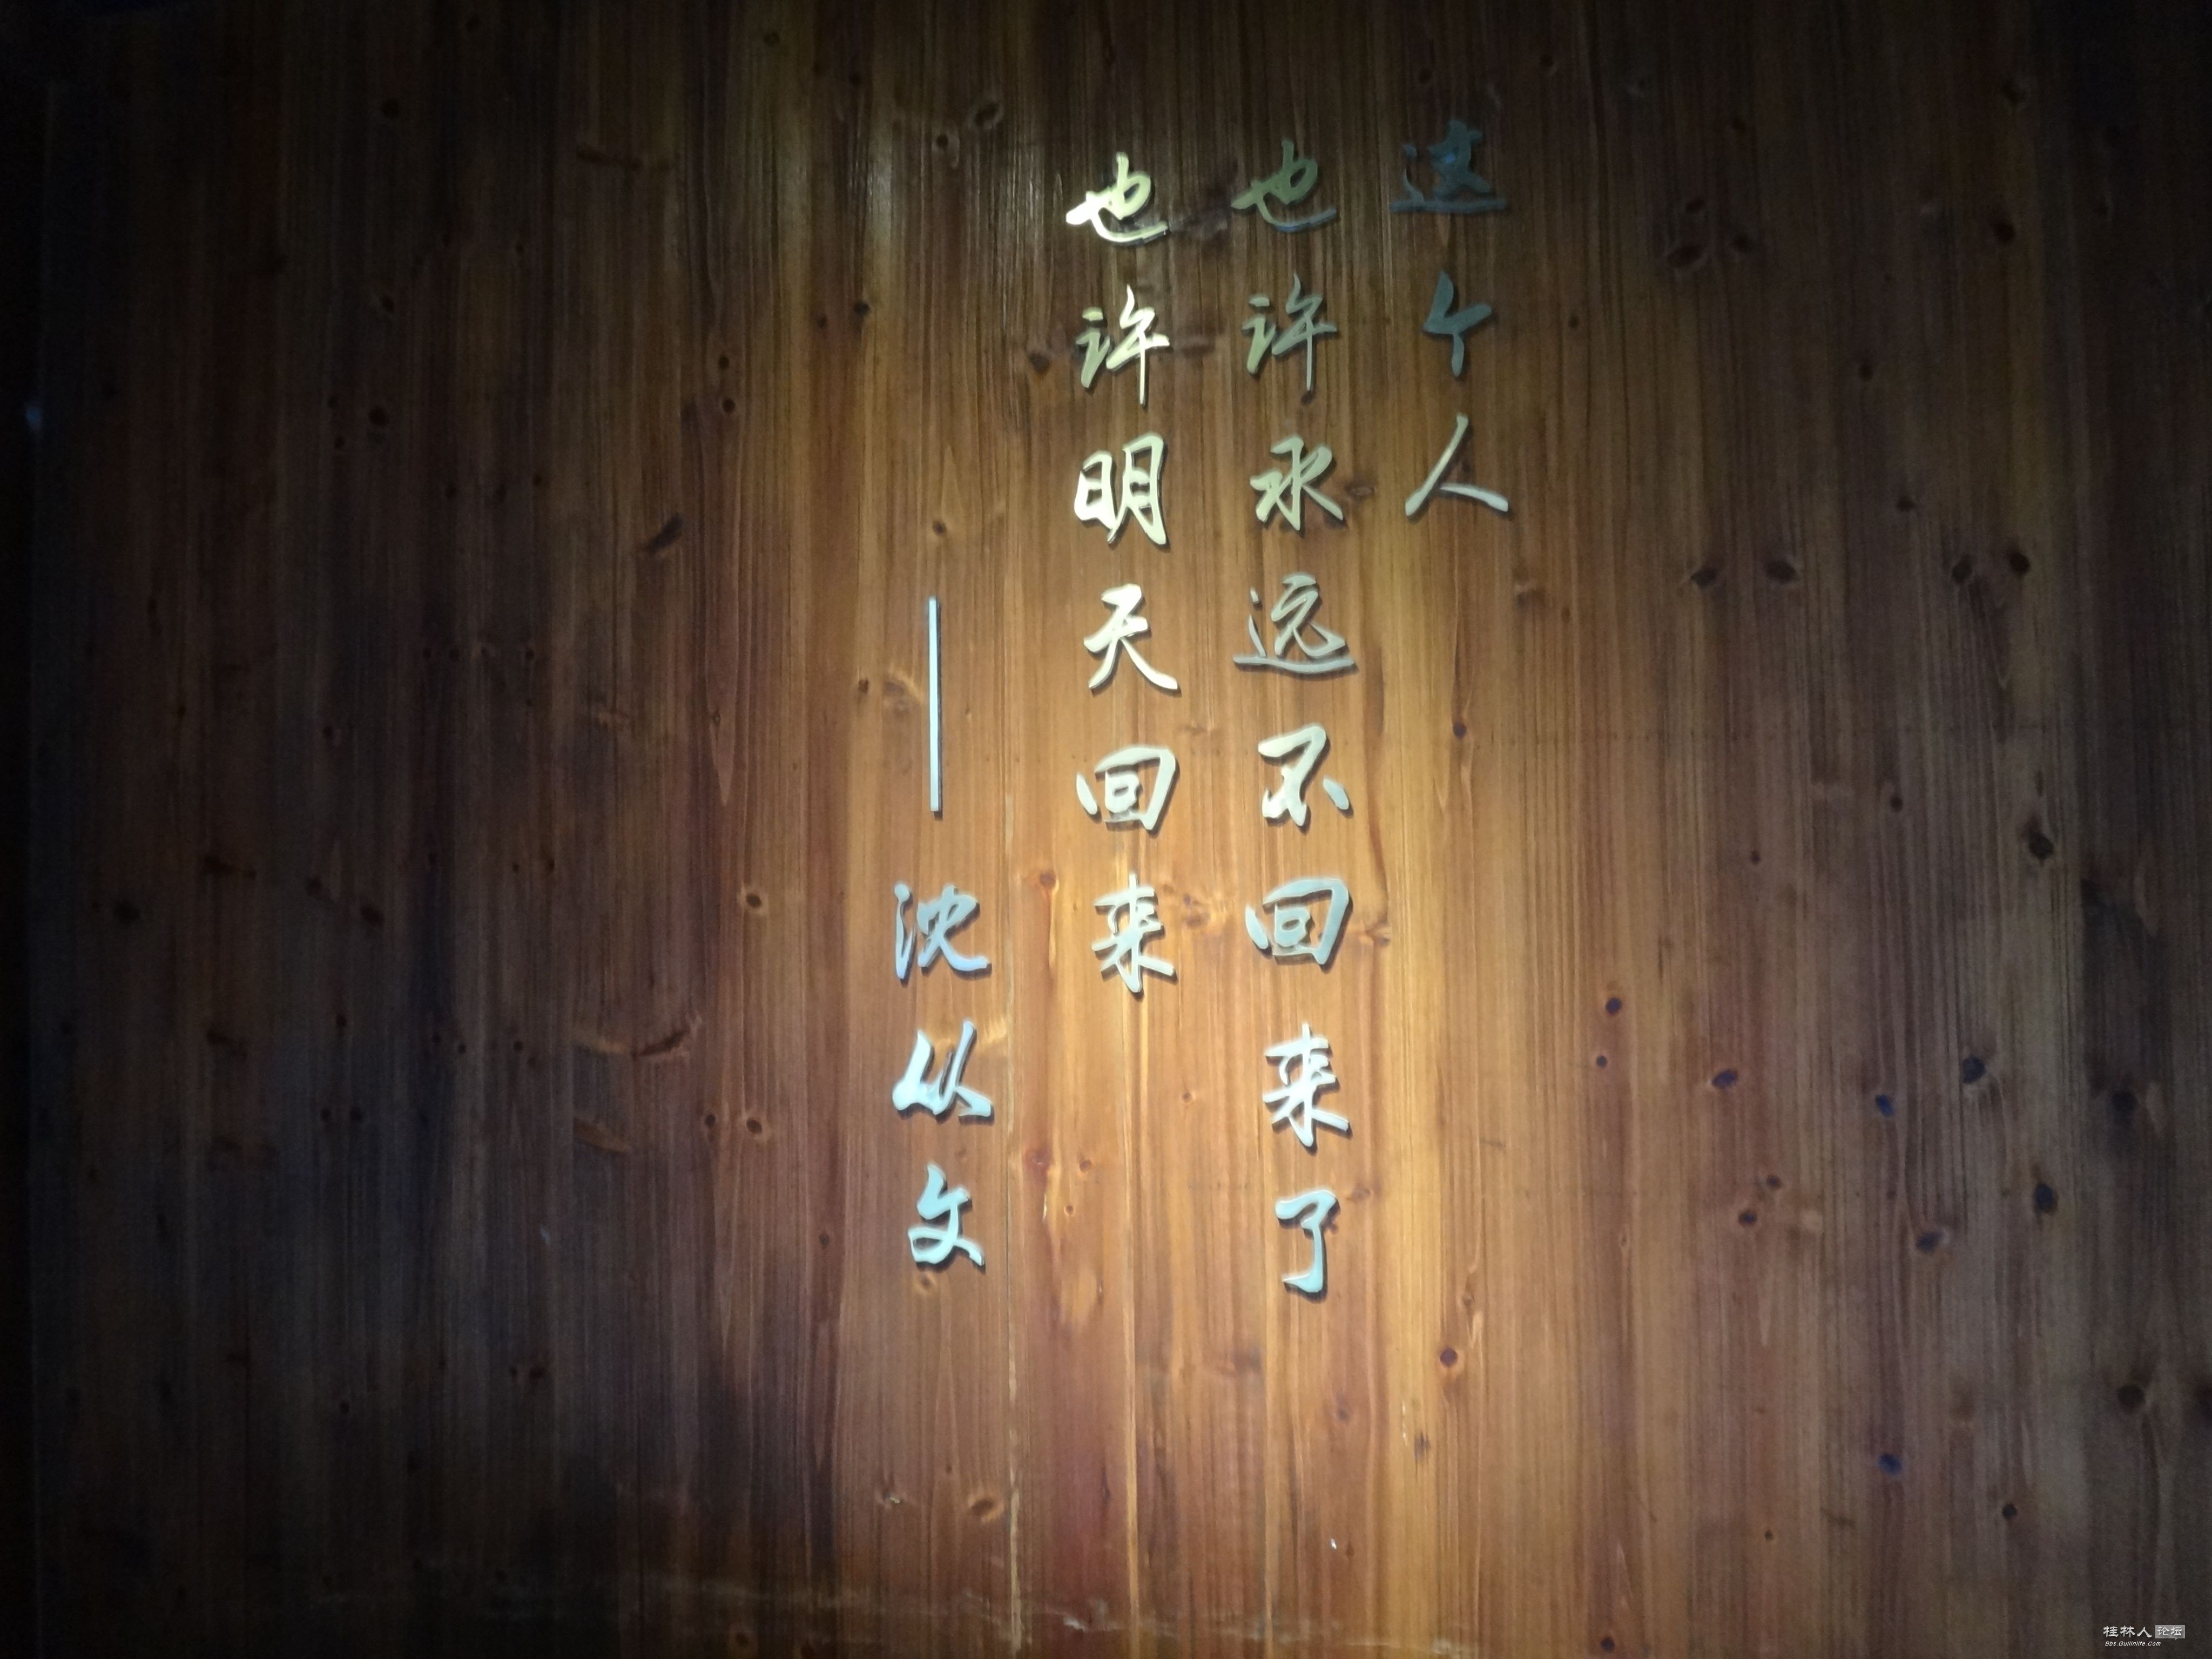 这个人
也许永远不回来了
也许明天回来
——沈从文
桂林人论坛
Bbs.Guilinlife.Com